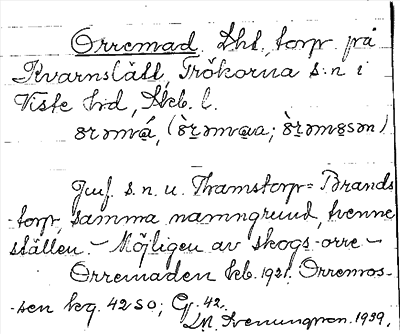 Orremad. Lht, torp på
Kvarnslätt, Trökörna s:n i
Viste hd, Skb. l.
ørəmá, (ø̀rəmɑna; ø̀rəmɷsən)
Jmf. s. n. u. Thamstorp = Brands-
torp, samma namngrund, tvenne
ställen. - Möjligen av skogs-orre -
Orremaden kb. 1921. Orremos-
sen kg. 42 SO; Gj. 42.
M. Svenungson. 1939.